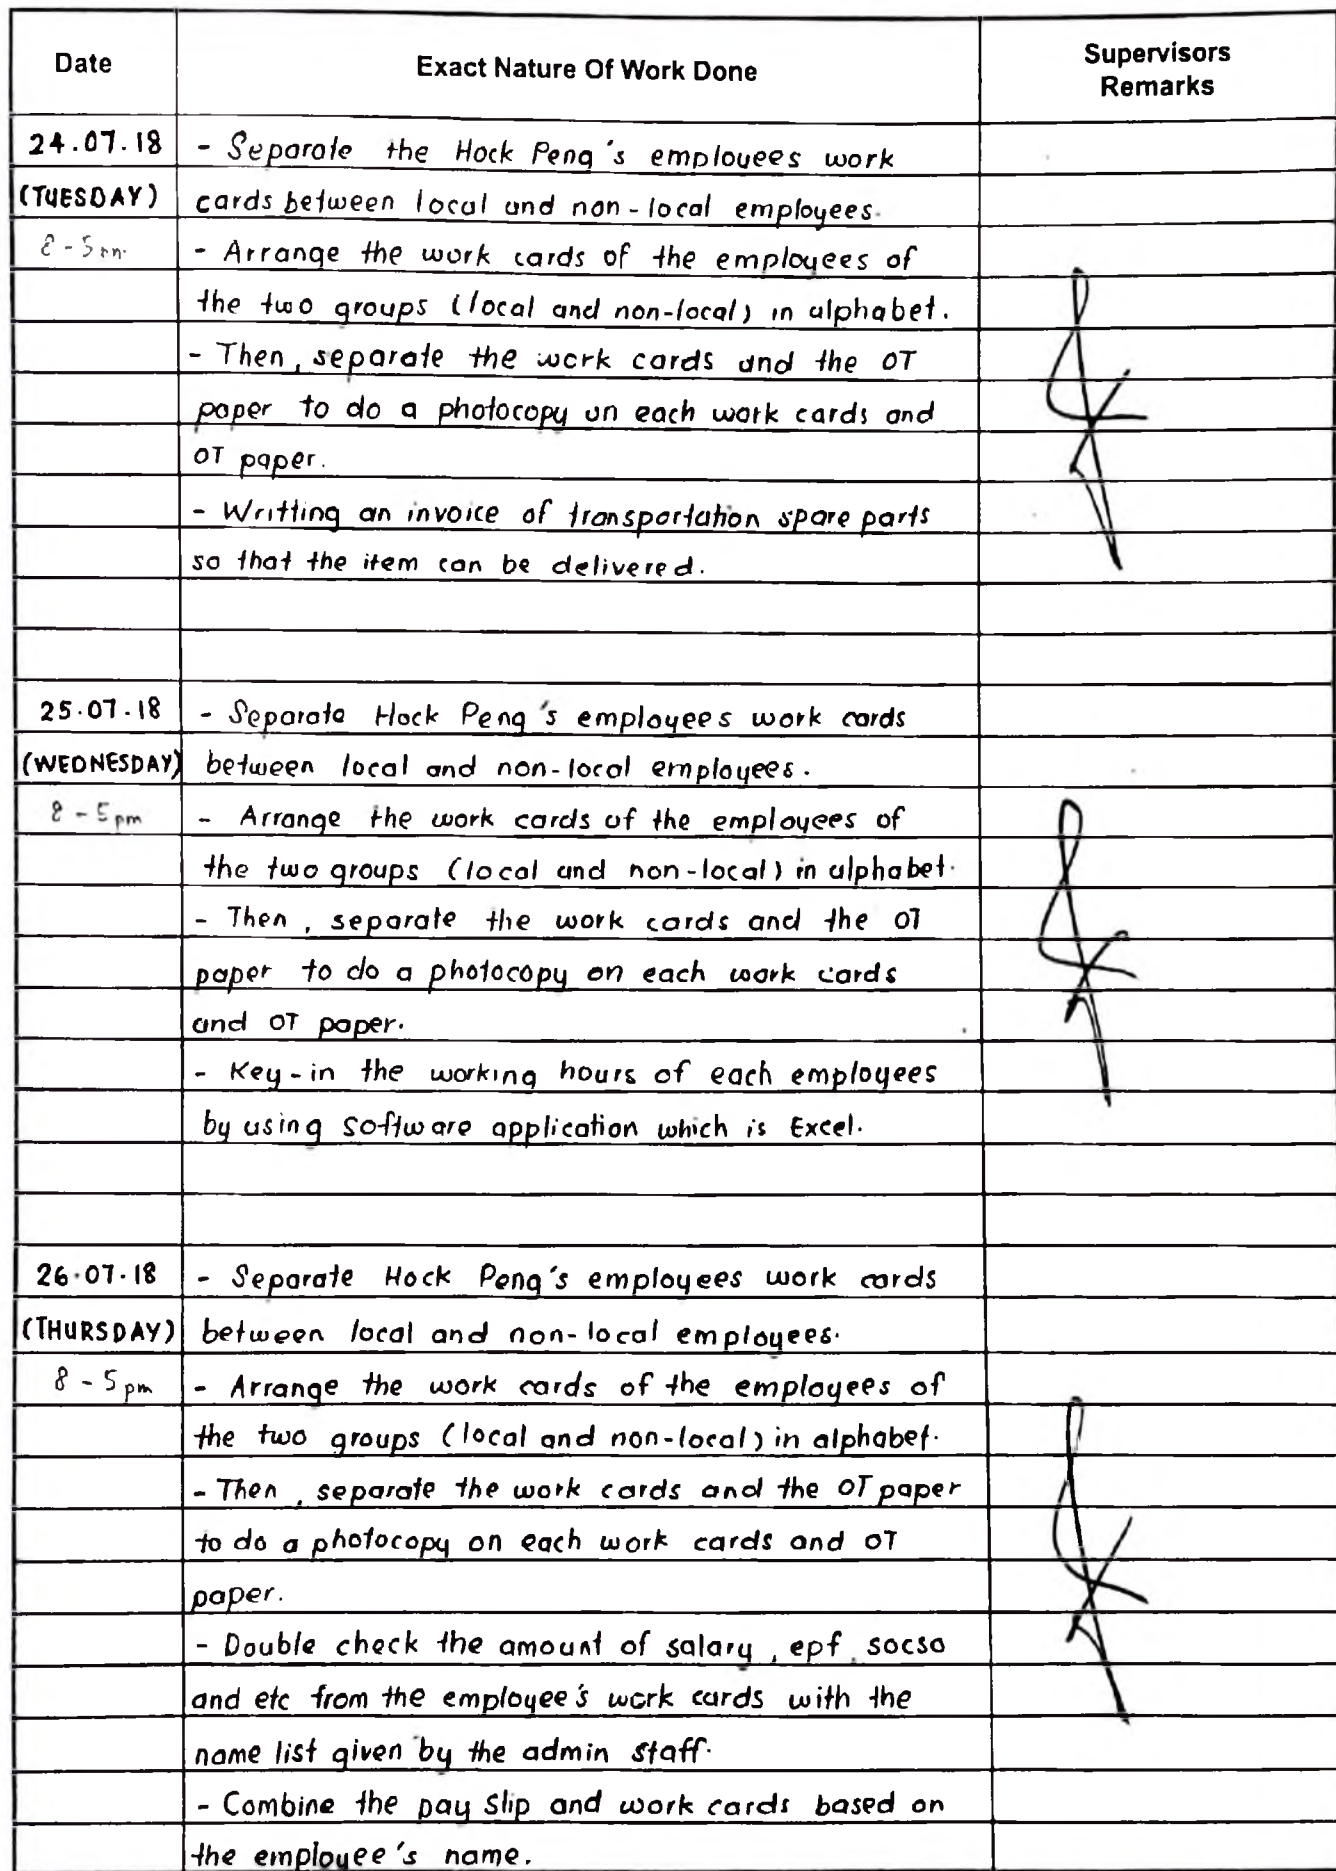 Date Exact Nature Of Work Done Supervisors
Remarks
24.07.18 - Separate the Hock Peng's employees work
(TUESDAY) cards between local and non-local employees.
8 - 5pm - Arrange the work cards of the employees of
the two groups (local and non-local) in alphabet.
- Then, separate the work cards and the OT
paper to do a photocopy on each work cards and
OT paper.
- Writting an invoice of transportation spare parts
so that the item can be delivered.
25.07.18 - Separate Hock Peng's employees work cards
(WEDNESDAY) between local and non-local employees.
8 - 5pm - Arrange the work cards of the employees of
the two groups (local and non-local) in alphabet.
- Then, separate the work cards and the OT
paper to do a photocopy on each work cards
and OT paper.
- Key-in the working hours of each employees
by using software application which is Excel.
26.07.18 - Separate Hock Peng's employees work cards
(THURSDAY) between local and non-local employees.
8 - 5pm - Arrange the work cards of the employees of
the two groups (local and non-local) in alphabet.
- Then, separate the work cards and the OT paper
to do a photocopy on each work cards and OT
paper.
- Double check the amount of salary, epf, socso
and etc from the employee's work cards with the
name list given by the admin staff.
- Combine the pay slip and work cards based on
the employee's name.